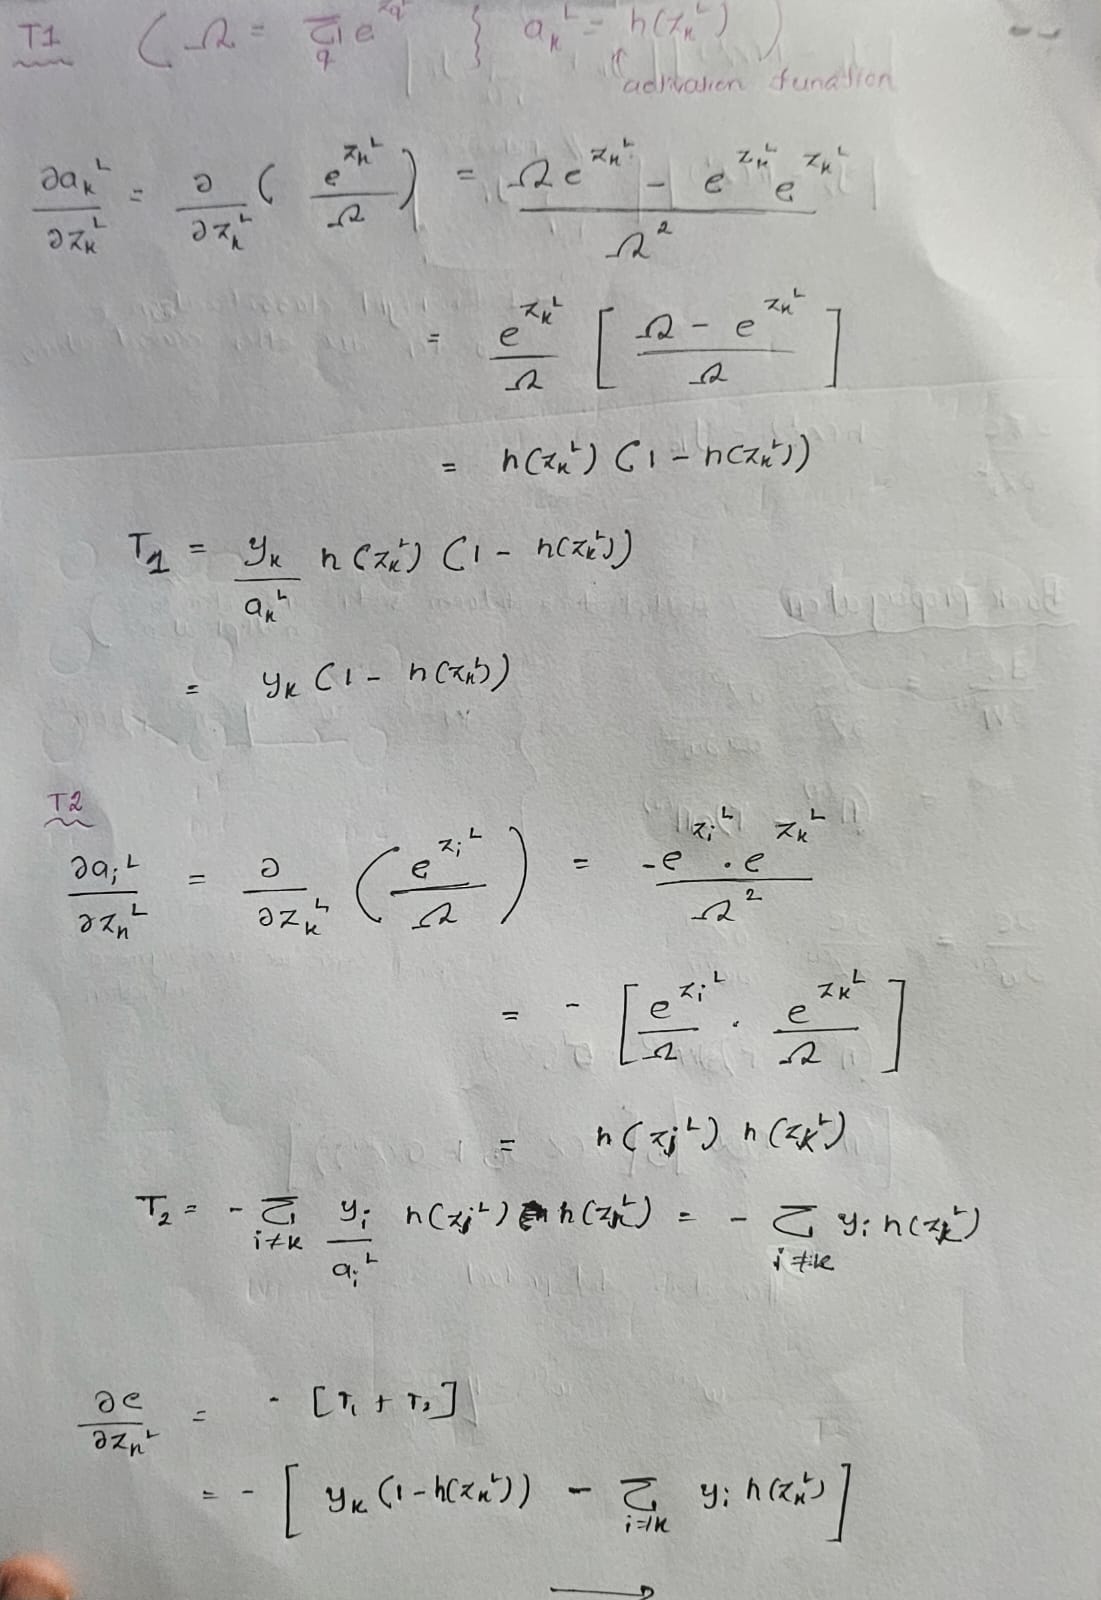 T1 ( Ω = Σ_q e^{z_q^L} } a_k^L = h(z_k^L) )
activation function
∂a_k^L / ∂z_k^L = ∂/∂z_k^L ( e^{z_k^L} / Ω ) = (Ω e^{z_k^L} - e^{z_k^L} e^{z_k^L}) / Ω^2
= e^{z_k^L} / Ω [ (Ω - e^{z_k^L}) / Ω ]
= h(z_k^L) (1 - h(z_k^L))
T_1 = y_k / a_k^L h(z_k^L) (1 - h(z_k^L))
= y_k (1 - h(z_k^L))
T2
∂a_i^L / ∂z_k^L = ∂/∂z_k^L ( e^{z_i^L} / Ω ) = -e^{z_i^L} · e^{z_k^L} / Ω^2
= - [ e^{z_i^L} / Ω · e^{z_k^L} / Ω ]
= h(z_i^L) h(z_k^L)
T_2 = - Σ_{i≠k} y_i / a_i^L h(z_i^L) h(z_k^L) = - Σ_{i≠k} y_i h(z_k^L)
∂e / ∂z_k^L = - [T_1 + T_2]
= - [ y_k (1 - h(z_k^L)) - Σ_{i≠k} y_i h(z_k^L) ]
→